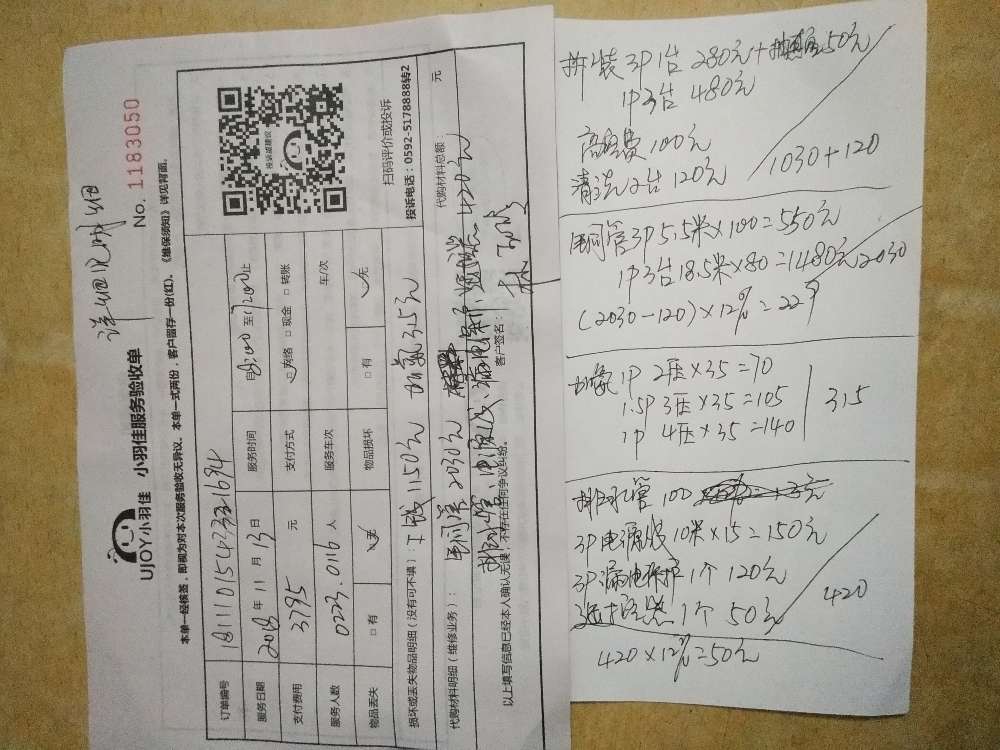 详细见明细
UJOY小羽佳 小羽佳服务验收单 No. 1183050
本单一经核签，即视为对本次服务验收无异议。本单一式两份，客户留存一份(红)。《维保须知》详见背面。
订单编号
服务日期 2018 年 11 月 13 日 服务时间 自 8:00 至 12:00 止
支付费用 3795 元 支付方式 □网络 □现金 □转账
服务人数 0223.0116 人 服务车次 车/次
物品丢失 □有 □无 物品损坏 □有 □无
投诉或建议
扫码评价或投诉
投诉电话：0592-5178888转2
损坏或丢失物品明细（没有可不填）：工钱1150元 加氟315元
代购材料明细（维修业务）： 铜管2030元 代购材料总额： 元
排水管、电源线、漏电保护 420元
以上填写信息已经本人确认无误，不存在任何争议纠纷。 客户签名：
拆装3P1台 280元+ 50元
1P3台 480元
高空费100元
清洗2台120元 1030+120
铜管3P5.5米×100=550元
1P3台18.5米×80=1480元 2030
(2030-120)×12%=229
加氟 1P 2压×35=70
1.5P 3压×35=105
1P 4压×35=140 315
排水管 100
3P电源线10米×15=150元
3P漏电保护1个 120元
1个 50元 420
420×12%=50元